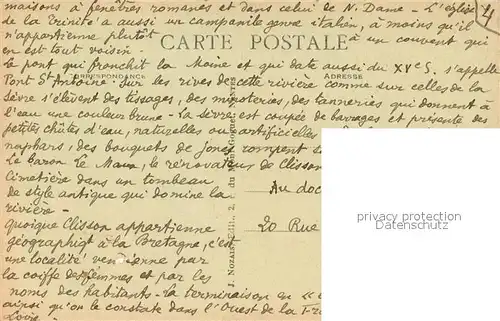 maisons à fenêtres romanes et dans celui de N. Dame - L'église
de la Trinité a aussi un campanile genre italien, à moins qu'il
n'appartienne plutôt à un couvent qui
en est tout voisin
CARTE POSTALE
Le pont qui franchit la Moine et qui date aussi du XVe S. s'appelle
CORRESPONDANCE
ADRESSE
Pont St Antoine. Sur les rives de cette rivière comme sur celles de la
Sèvre s'élèvent des tissages, des minoteries, des tanneries qui donnent à
l'eau une couleur brune - La Sèvre est coupée de barrages et présente des
petites chûtes d'eau, naturelles ou artificielles
nénuphars, des bouquets de joncs rompent
Le Baron le rénovateur de Clisson
cimetière dans un tombeau
de style antique qui domine la
rivière -
quoique Clisson appartienne
géographiqt à la Bretagne, c'est
une localité vendéenne par
la coiffe des femmes et par les
noms des habitants - La terminaison en
ainsi qu'on le constate dans l'Ouest de la
Loire -
J. NOZAIS, Édit., 2, r. du NANTES
Au doc
20 Rue
privacy protection
Datenschutz